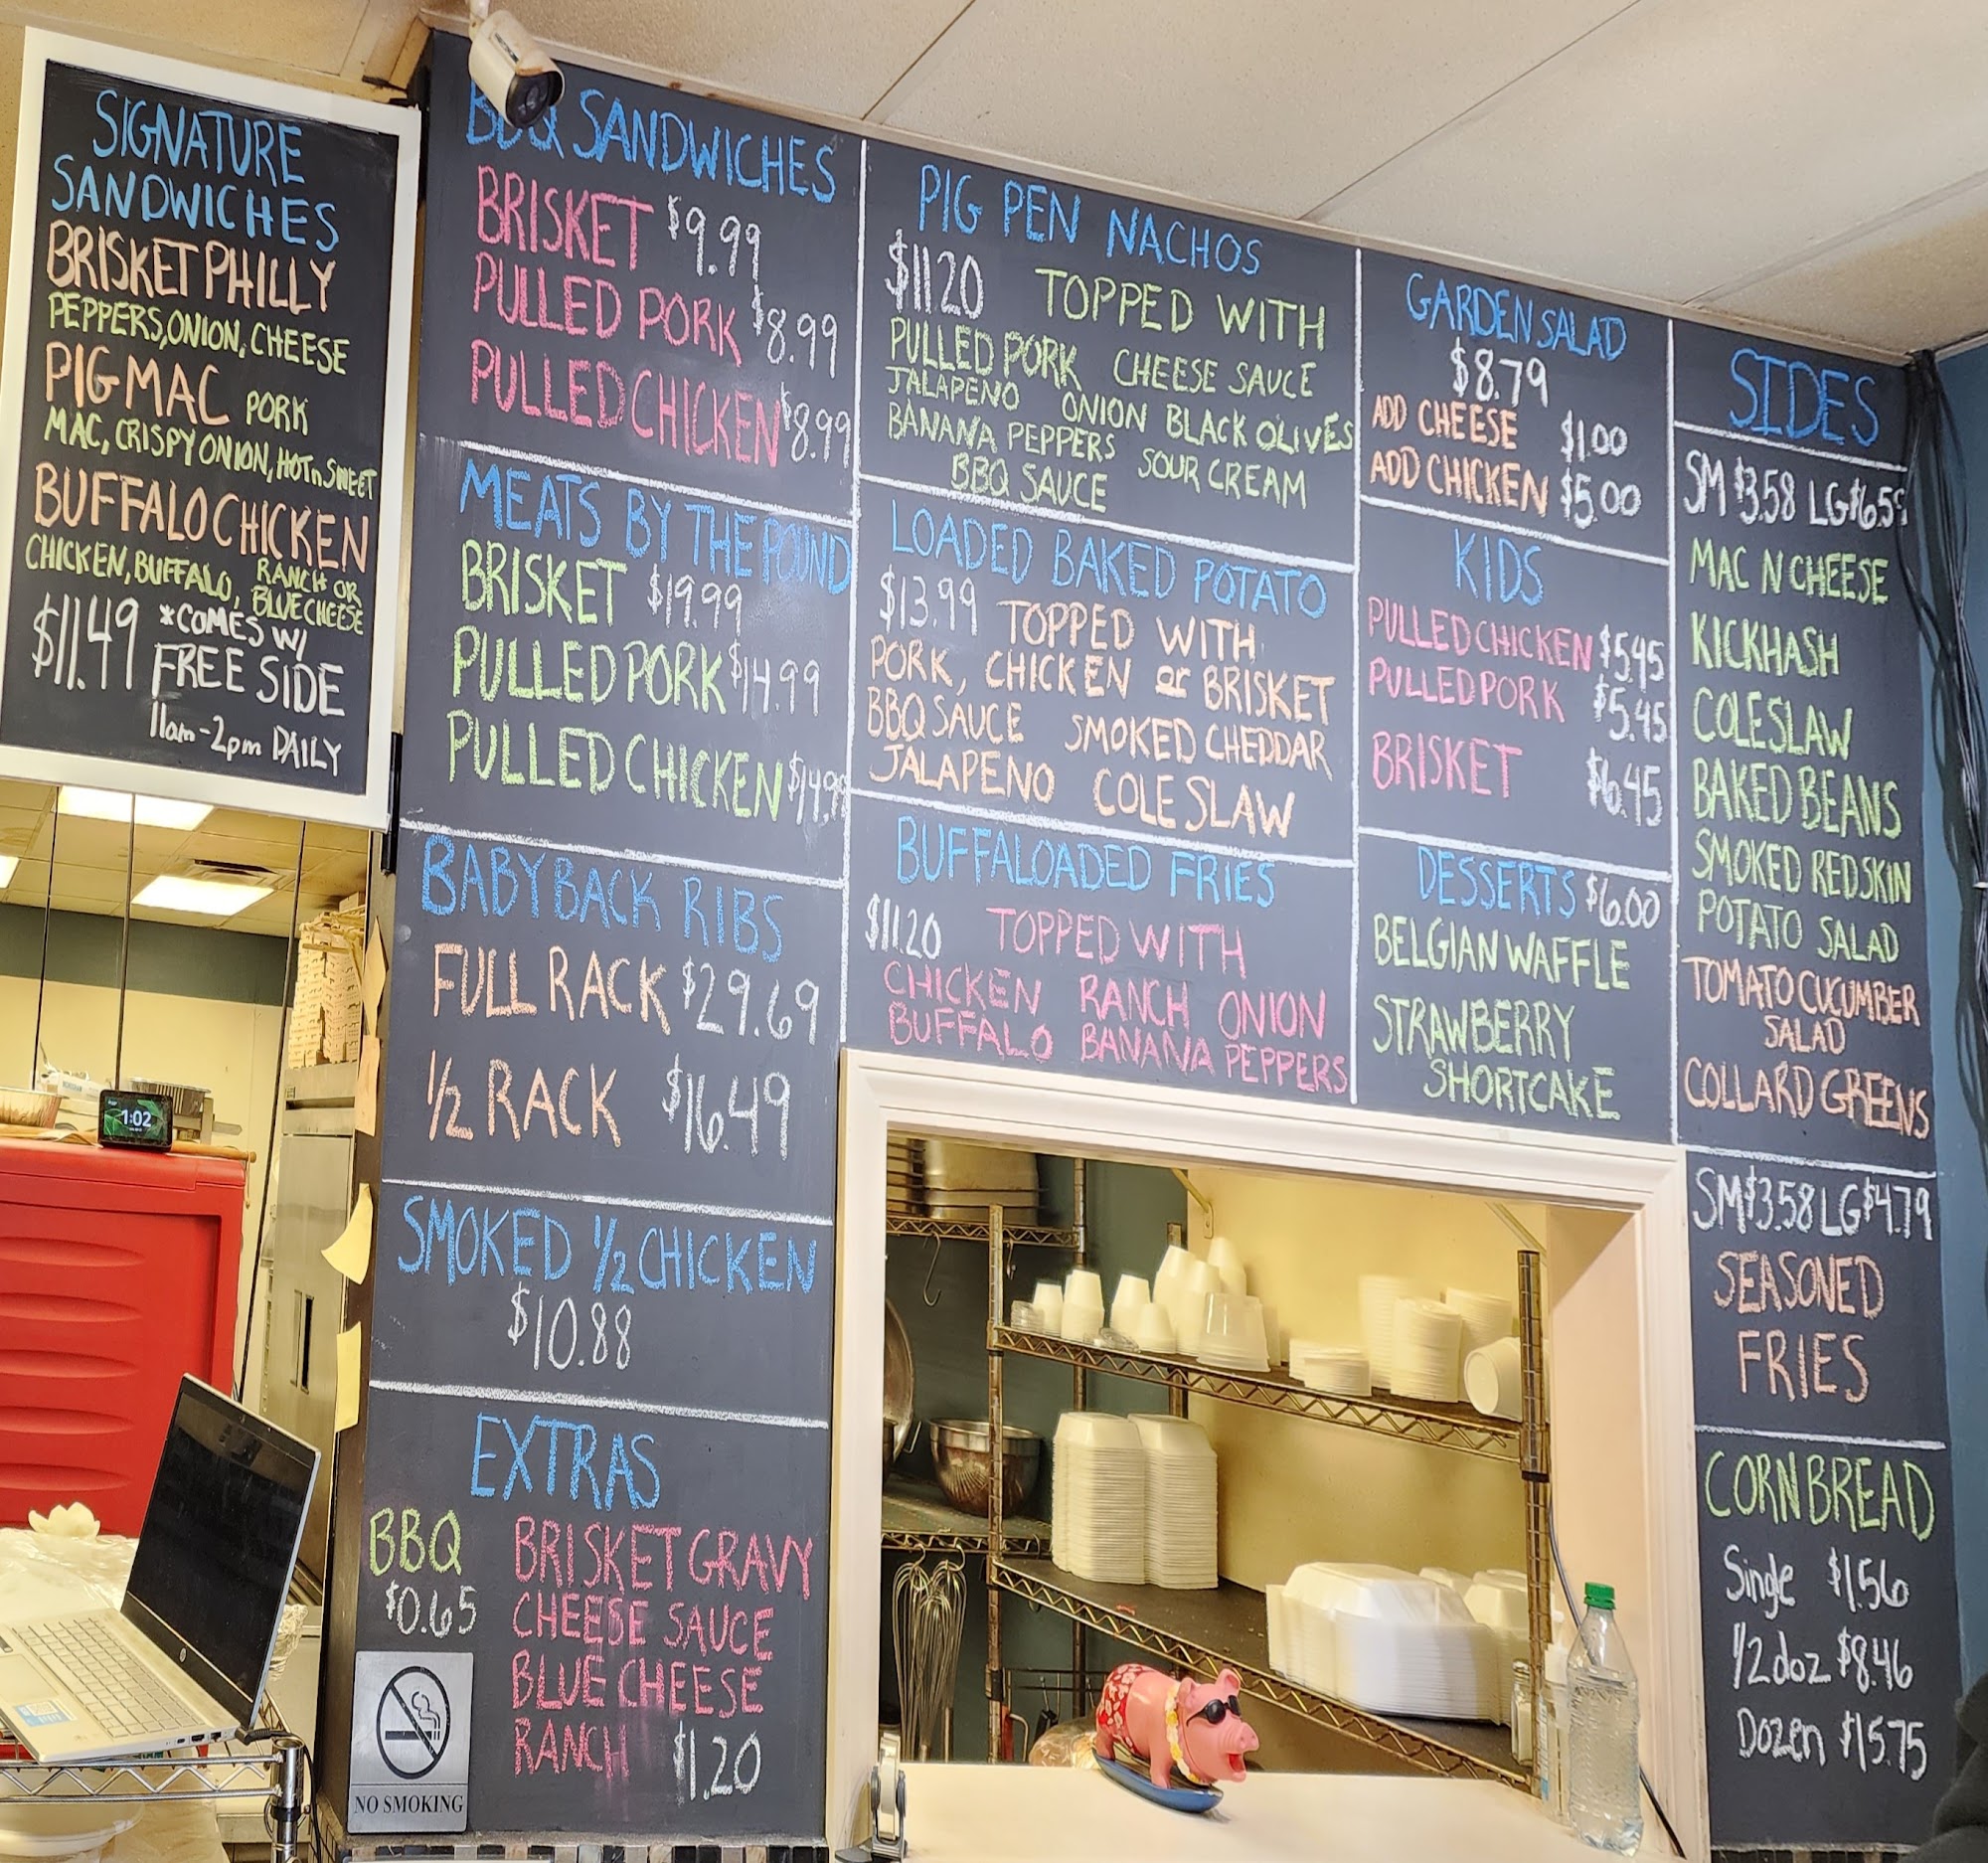 SIGNATURE
SANDWICHES
BRISKET PHILLY
PEPPERS, ONION, CHEESE
PIG MAC PORK
MAC, CRISPY ONION, HOT n SWEET
BUFFALO CHICKEN
CHICKEN, BUFFALO, RANCH OR
BLUE CHEESE
$11.49 *COMES W/
FREE SIDE
11am-2pm DAILY
BBQ SANDWICHES
BRISKET $9.99
PULLED PORK $8.99
PULLED CHICKEN $8.99
MEATS BY THE POUND
BRISKET $19.99
PULLED PORK $14.99
PULLED CHICKEN $14.99
BABY BACK RIBS
FULL RACK $29.69
1/2 RACK $16.49
SMOKED 1/2 CHICKEN
$10.88
EXTRAS
BBQ
$0.65
BRISKET GRAVY
CHEESE SAUCE
BLUE CHEESE
RANCH $1.20
NO SMOKING
PIG PEN NACHOS
$11.20 TOPPED WITH
PULLED PORK CHEESE SAUCE
JALAPENO ONION BLACK OLIVES
BANANA PEPPERS SOUR CREAM
BBQ SAUCE
LOADED BAKED POTATO
$13.99 TOPPED WITH
PORK, CHICKEN OR BRISKET
BBQ SAUCE SMOKED CHEDDAR
JALAPENO COLE SLAW
BUFFALOADED FRIES
$11.20 TOPPED WITH
CHICKEN RANCH ONION
BUFFALO BANANA PEPPERS
GARDEN SALAD
$8.79
ADD CHEESE $1.00
ADD CHICKEN $5.00
KIDS
PULLED CHICKEN $5.45
PULLED PORK $5.45
BRISKET $6.45
DESSERTS $6.00
BELGIAN WAFFLE
STRAWBERRY
SHORTCAKE
SIDES
SM $3.58 LG
MAC N CHEESE
KICKHASH
COLESLAW
BAKED BEANS
SMOKED REDSKIN
POTATO SALAD
TOMATO CUCUMBER
SALAD
COLLARD GREENS
SM $3.58 LG $4.79
SEASONED
FRIES
CORN BREAD
Single $1.56
1/2 doz $8.46
Dozen $15.75
1:02